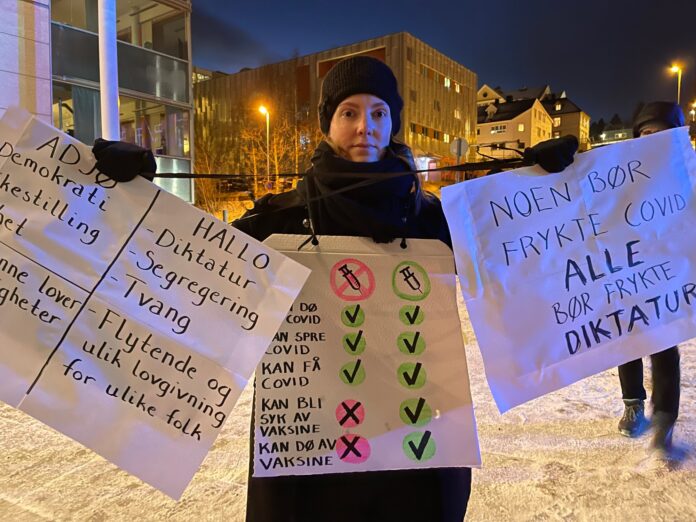 ADJØ
Demokrati
HALLO
-Diktatur
-Segregering
-Tvang
-Flytende og
ulik lovgivning
for ulike folk
DØ
COVID
SPRE
COVID
KAN FÅ
COVID
KAN BLI
SYK AV
VAKSINE
KAN DØ AV
VAKSINE
NOEN BØR
FRYKTE COVID
ALLE
BØR FRYKTE
DIKTATUR